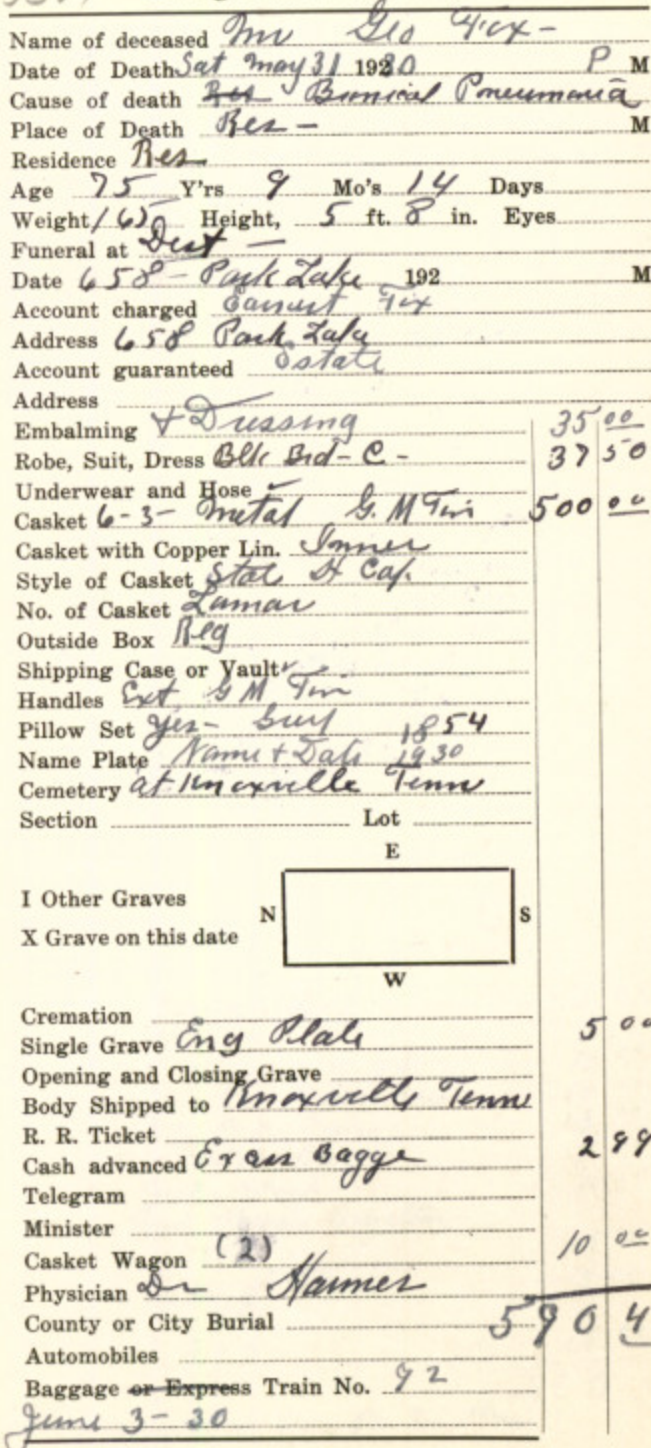 Name of deceased Mr Geo Fox -
Date of Death Sat May 31 1930 P M
Cause of death Res Bronical Pneumonia
Place of Death Res - M
Residence Res
Age 75 Y'rs 9 Mo's 14 Days
Weight 165 Height, 5 ft. 8 in. Eyes
Funeral at Dist -
Date 658 - Park Lake 192 M
Account charged Earnest Fox
Address 658 Park Lake
Account guaranteed Estate
Address
Embalming + Dressing 35 00
Robe, Suit, Dress Blk Brd - C - 37 50
Underwear and Hose
Casket 6-3- Metal G. M Fin 500 00
Casket with Copper Lin. Inner
Style of Casket State H Cap.
No. of Casket Lamar
Outside Box Reg
Shipping Case or Vault
Handles Ext G M Fin
Pillow Set yes - 1854
Name Plate Name + Date 1930
Cemetery at Knoxville Tenn
Section Lot
E
I Other Graves
N S
X Grave on this date
W
Cremation
Single Grave Eng Plate 5 00
Opening and Closing Grave
Body Shipped to Knoxville Tenn
R. R. Ticket
Cash advanced Excess Bagge 2 99
Telegram
Minister
Casket Wagon (2) 10 00
Physician Dr Harmes
County or City Burial 590 4
Automobiles
Baggage or Express Train No. 92
June 3 - 30